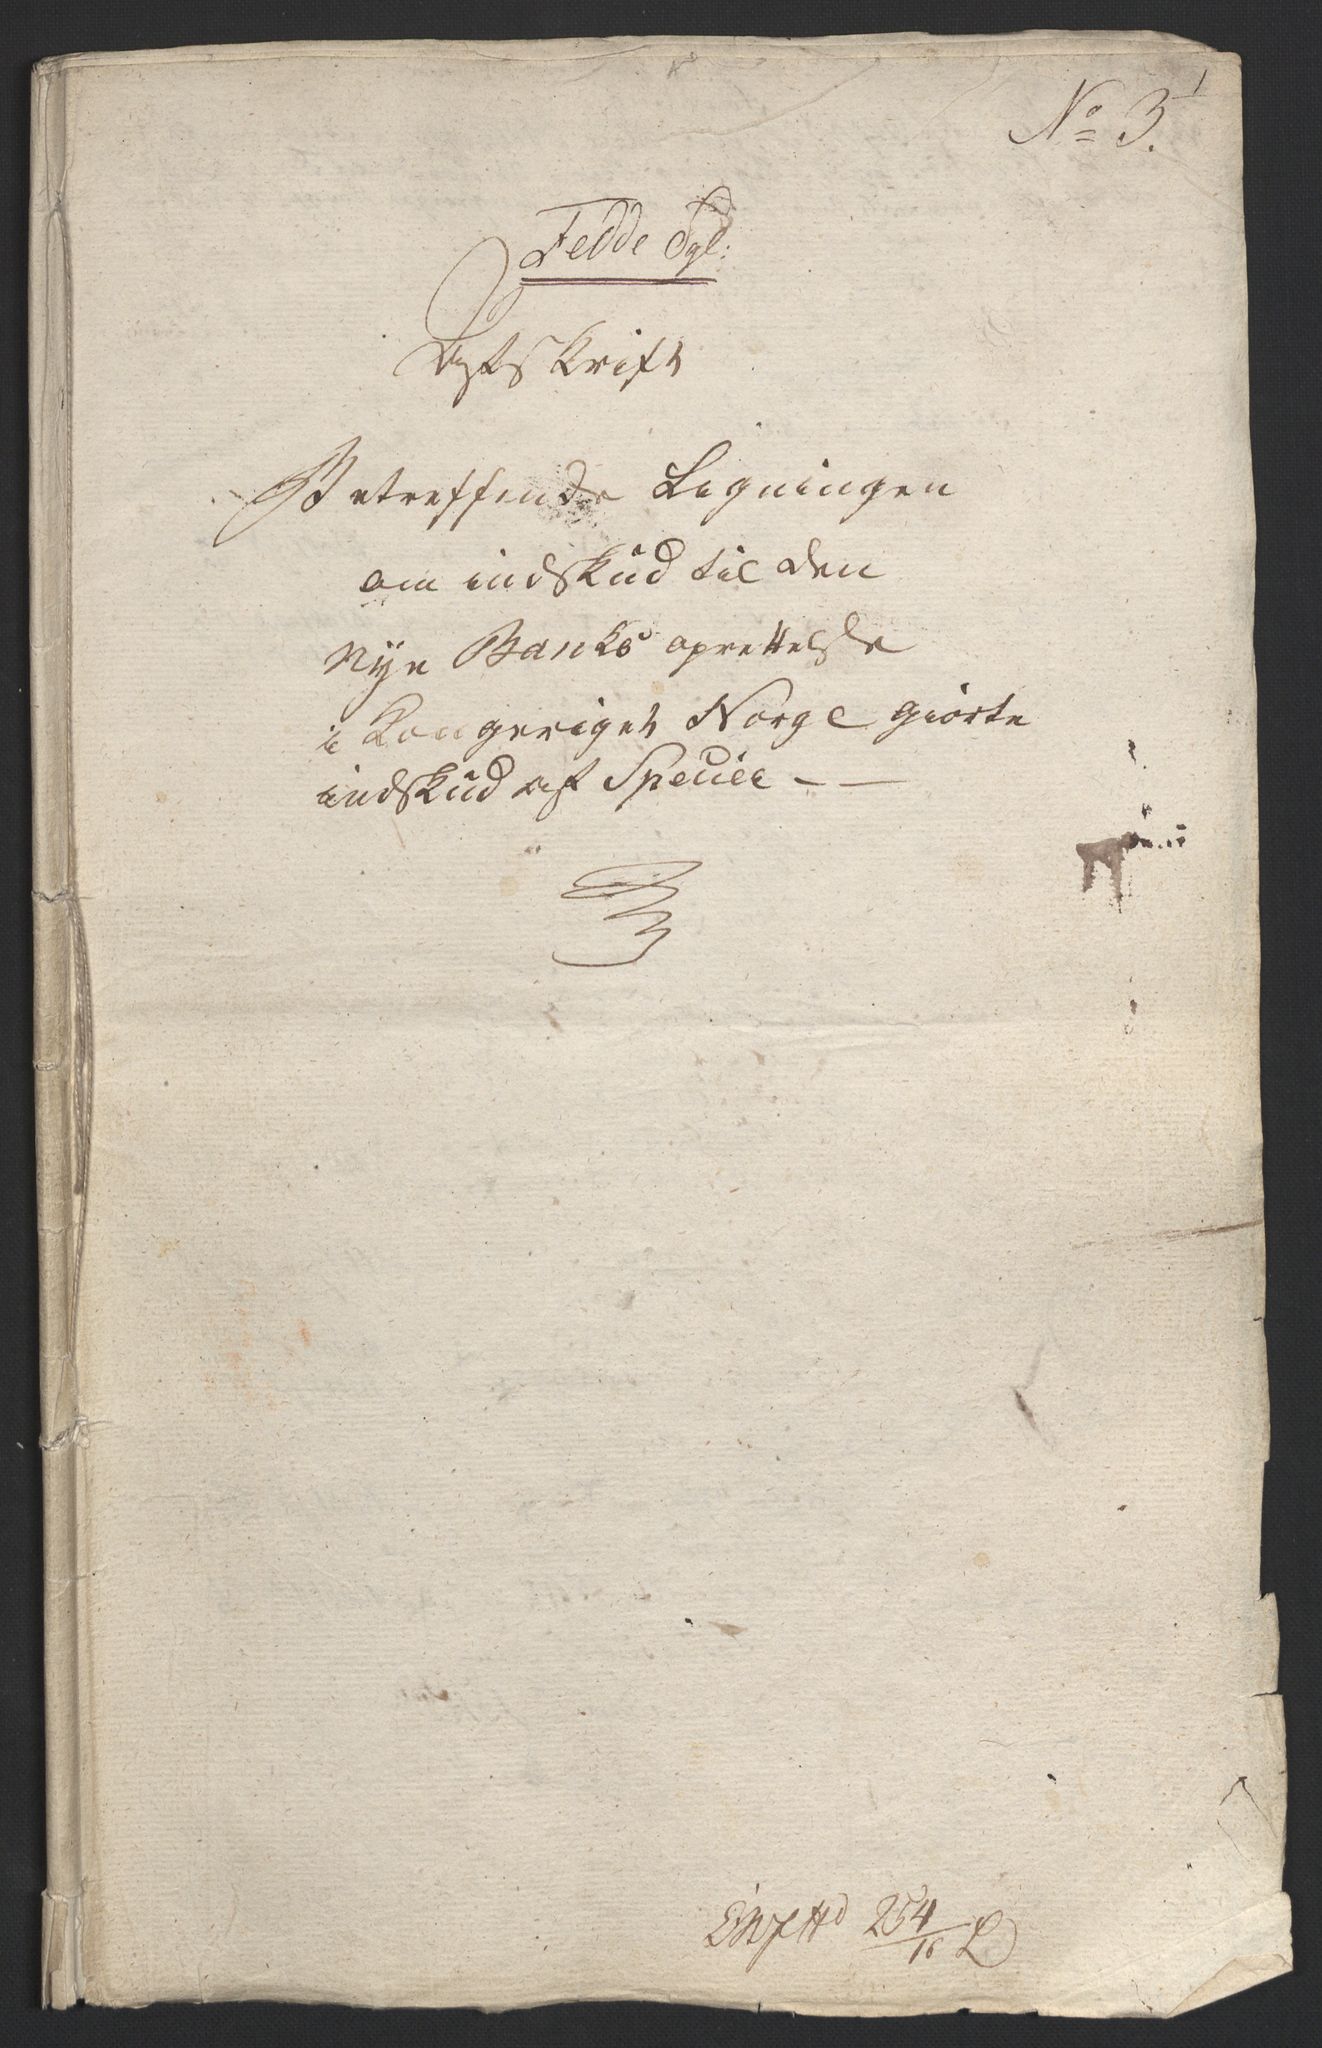 No 3.
1
Fedde Sgl:
Udskrift
Betreffende Ligningen
om indskud til den
Nÿe Banks oprettelse
i Kongeriget Norge giorte
indskud af Specier — —
254/16